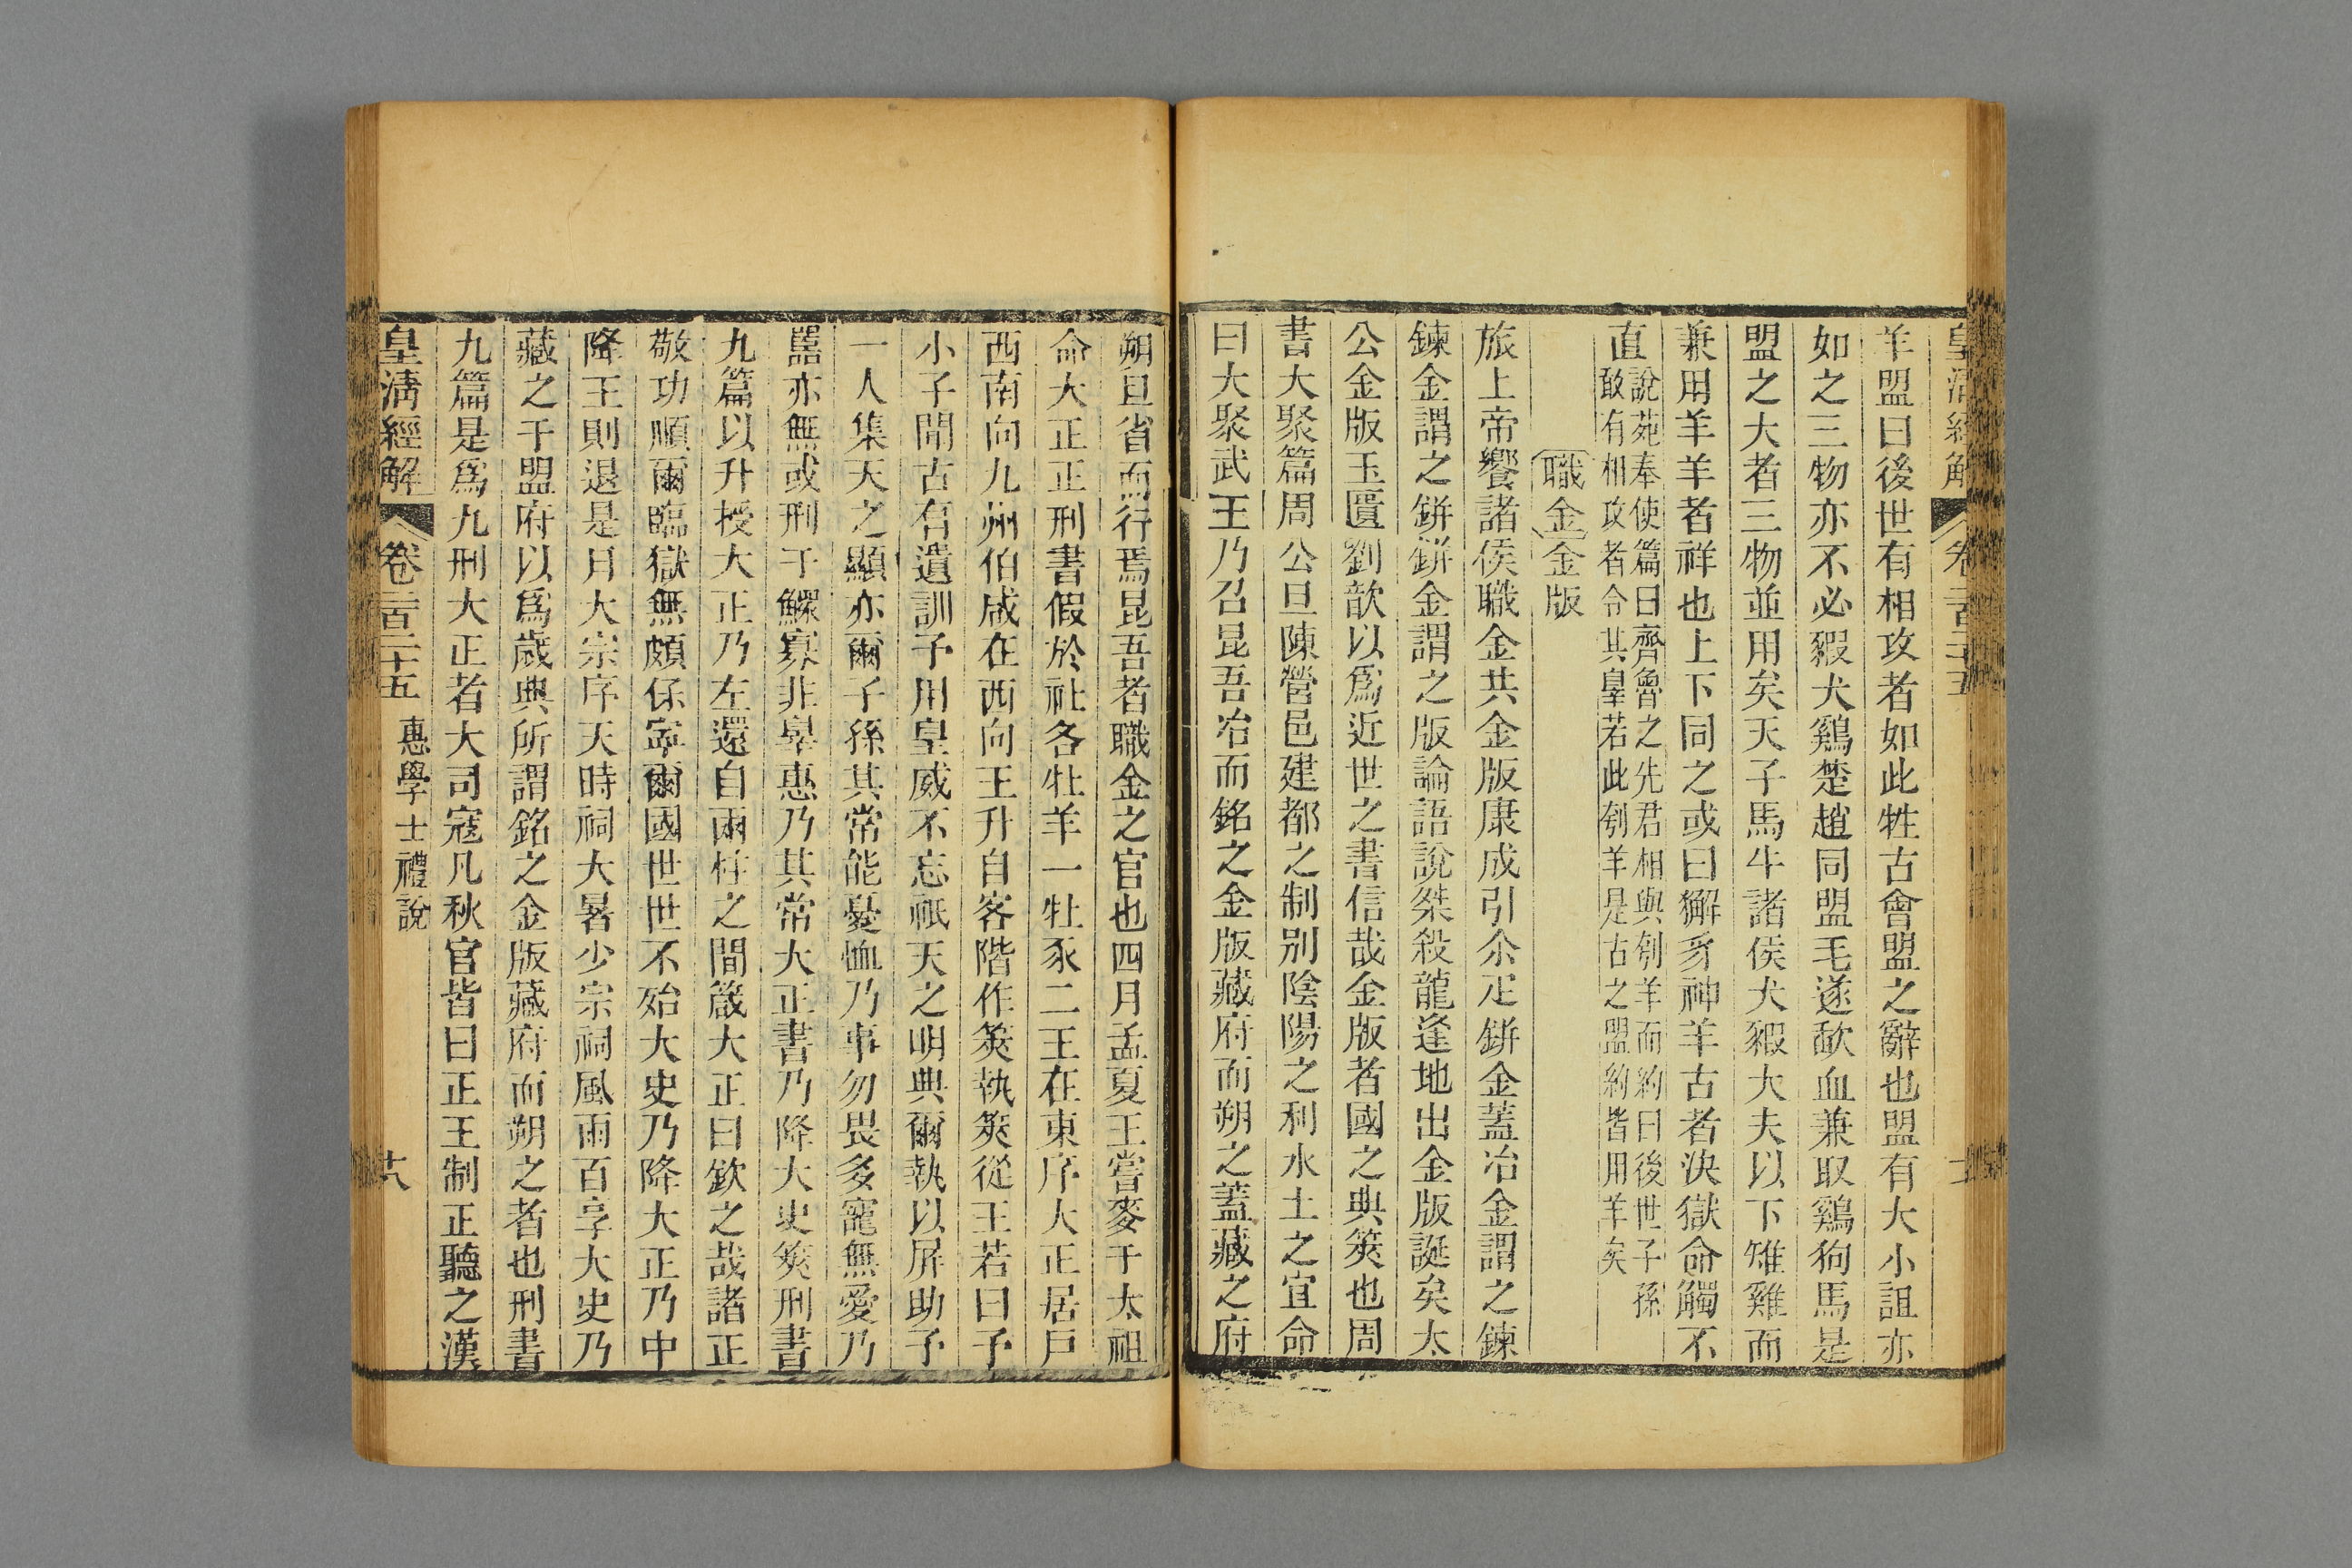 羊盟曰後世有相攻者如此牲古會盟之辭也盟有大小詛亦
如之三物亦不必豭犬鷄楚趙同盟毛遂歃血兼取鷄狗馬是
盟之大者三物並用矣天子馬牛諸侯犬豭大夫以下雉雞而
兼用羊羊者祥也上下同之或曰獬豸神羊古者決獄命觸不
直說苑奉使篇曰齊魯之先君相與刳羊而約曰後世子孫
敢有相攻者令其辠若此刳羊是古之盟約皆用羊矣
職金金版
旅上帝饗諸侯職金共金版康成引尒疋鉼金蓋冶金謂之鍊
鍊金謂之鉼鉼金謂之版論語說桀殺龍逢地出金版誕矣太
公金版玉匱劉歆以爲近世之書信哉金版者國之典筴也周
書大聚篇周公旦陳營邑建都之制别陰陽之利水土之宜命
曰大聚武王乃召昆吾冶而銘之金版藏府而朔之蓋藏之府
朔旦省而行焉昆吾者職金之官也四月孟夏王嘗麥于太祖
命大正正刑書假於社各牡羊一牡豕二王在東序大正居戶
西南向九州伯咸在西向王升自客階作筴執筴從王若曰予
小子聞古有遺訓予用皇威不忘祗天之明典爾執以屏助予
一人集天之顯亦爾子孫其常能憂恤乃事勿畏多寵無愛乃
嚚亦無或刑于鰥寡非辠惠乃其常大正書乃降大史筴刑書
九篇以升授大正乃左還自兩柱之間箴大正曰欽之哉諸正
敬功順爾臨獄無頗係寧爾國世世不殆大史乃降大正乃中
降王則退是月大宗序天時祠大暑少宗祠風雨百享大史乃
藏之于盟府以爲歲典所謂銘之金版藏府而朔之者也刑書
九篇是爲九刑大正者大司寇凡秋官皆曰正王制正聽之漢
皇淸經解 卷二百二十五 惠學士禮說 十八